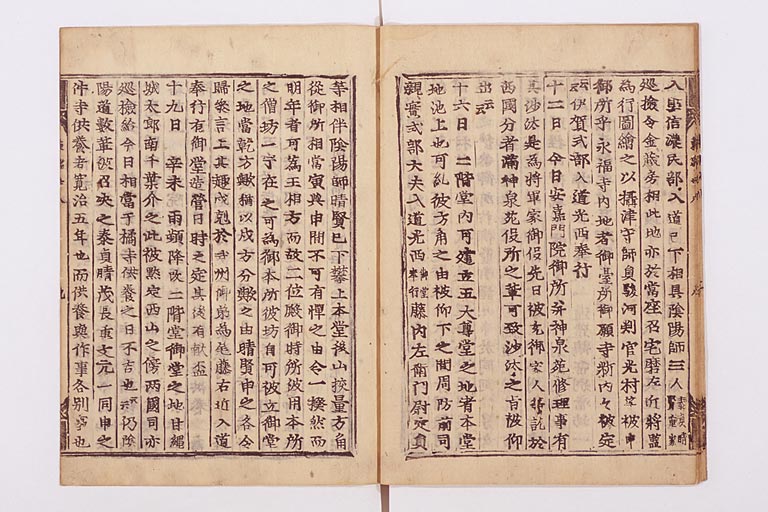 入道信濃民部入道已下相具陰陽師三人
巡撿令金藏房相此地亦於當座召宅磨左近將監
為行圖繪之以攝津守師員駿河判官光村等被申
御所乎永福寺內地者御臺所御願寺新內々被定
云云伊賀式部入道光西奉行
十二日 今日安嘉門院御所并神泉苑修理事有
其沙汰是為將軍家御役先日被充御家人訖於
西國分者滿神泉苑役所之輩可致沙汰之旨被仰
出云云
十六日 二階堂內可建立五大尊堂之地者本堂
地池上也可亂彼方角之由被仰下之間周防前司
親實式部大夫入道光西御堂奉行藤內左衛門尉定員
等相伴陰陽師晴賢已下攀上本堂後山挍量方角
從御所相當寅與申間不可有憚之由令一揆然而
明年者可為王相方而故二位殿御時所被用本所
之僧坊一宇在之可為御本所彼坊自可被立御堂
之地當乾方歟猶以戌方分歟之由晴賢申之各令
歸參言上其趣戌剋於武州御亭為藤右近入道
奉行有御堂造營日時之定其後有獻盃
十九日 辛未 雨頻降改二階堂御堂之地日
城太郎南千葉介之北被點定西山之傍兩國司亦
巡撿給今日相當于橘寺供養之日不吉也云云仍陰
陽道數輩被召决之泰貞晴茂長重文元一同申之
件寺供養者寬治五年也而供養與作事各別事也